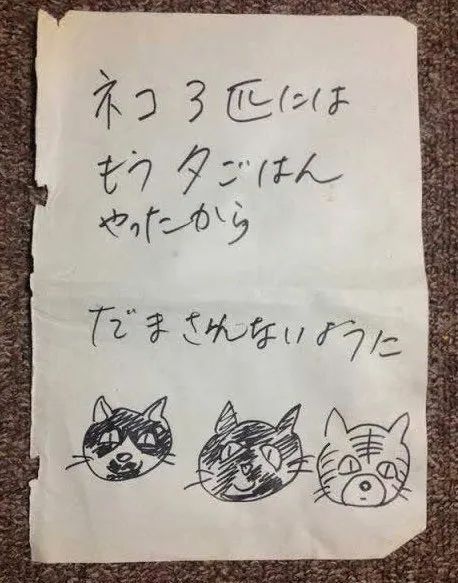 ネコ 3 匹には
もう夕ごはん
やったから
だまさんないように